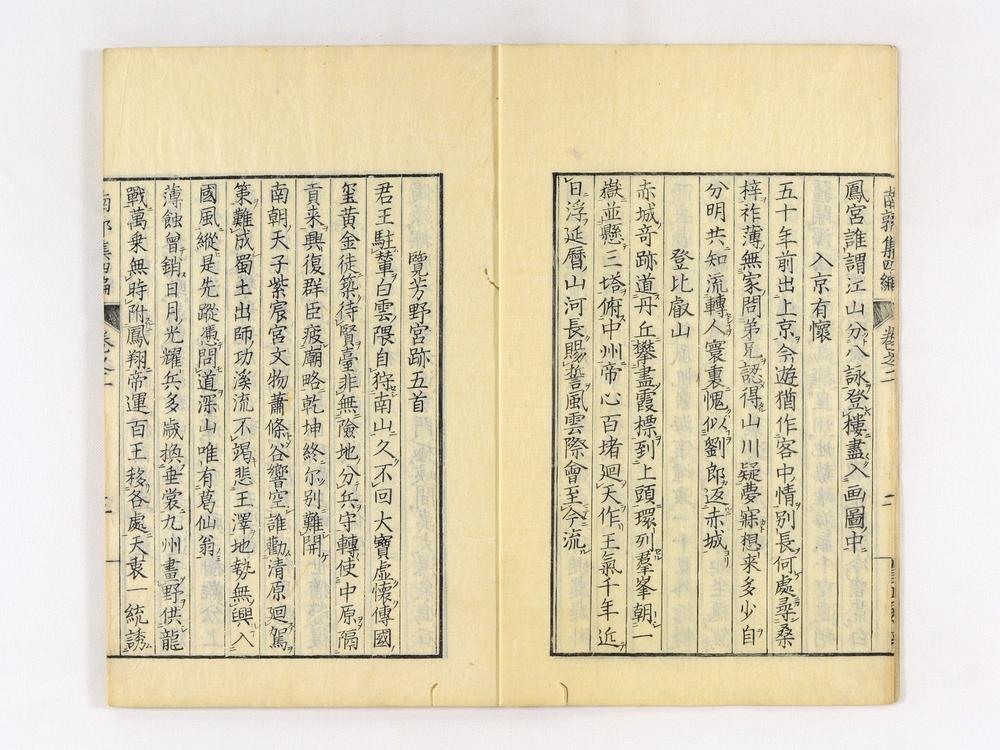 南郭集四編 卷之二 二
鳳宮誰謂江山分八詠登樓盡入画圖中
入京有懷
五十年前出上京今遊猶作客中情別長何處尋桑
梓祚薄無家問弟兄認得山川疑夢寐想來多少自
分明共知流轉人寰裏愧似劉郎返赤城
登比叡山
赤城奇跡道丹丘攀盡霞標到上頭環列羣峯朝一
嶽並懸三塔俯中州帝心百堵廻天作王氣千年近
日浮延曆山河長賜誓風雲際會至今流
覽芳野宮跡五首
君王駐輦白雲隈自狩南山久不回大寶虛懷傳國
璽黃金徒築待賢臺非無險地分兵守轉使中原隔
貢來興復群臣疲廟略乾坤終尓別難開
南朝天子紫宸宮文物蕭條谷響空誰勸清原廻駕
第難成蜀土出師功溪流不竭悲王澤地勢無輿入
國風縱是先蹤憑問道深山唯有葛仙翁
薄蝕曾銷日月光耀兵多歲換垂裳九州畫野供龍
戰萬乘無時附鳳翔帝運百王移各處天衷一統誘
南郭集四編 卷之二